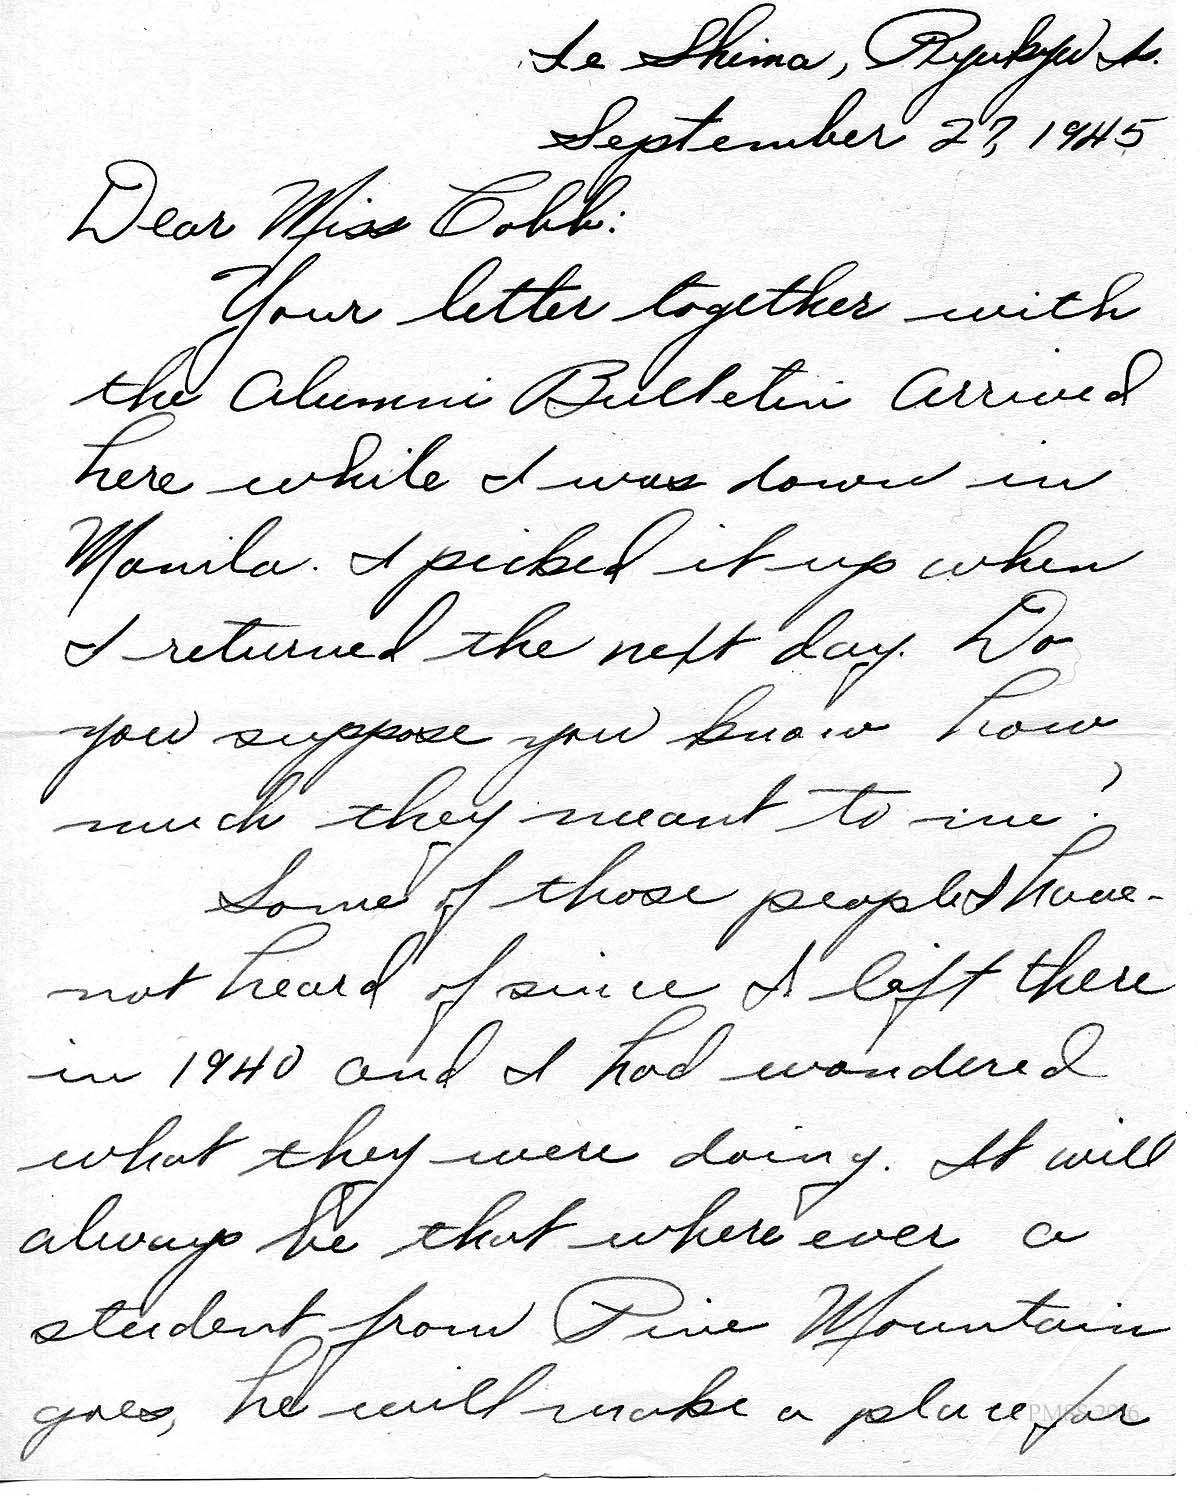 Ie Shima, Ryukyu Is.
September 27, 1945
Dear Miss Cobb:
Your letter together with
the Alumni Bulletin arrived
here while I was down in
Manila. I picked it up when
I returned the next day. Do
you suppose you know how
much they meant to me?
Some of those people I have
not heard of since I left there
in 1940 and I had wondered
what they were doing. It will
always be that where ever a
student from Pine Mountain
goes, he will make a place for
PMSS 2016